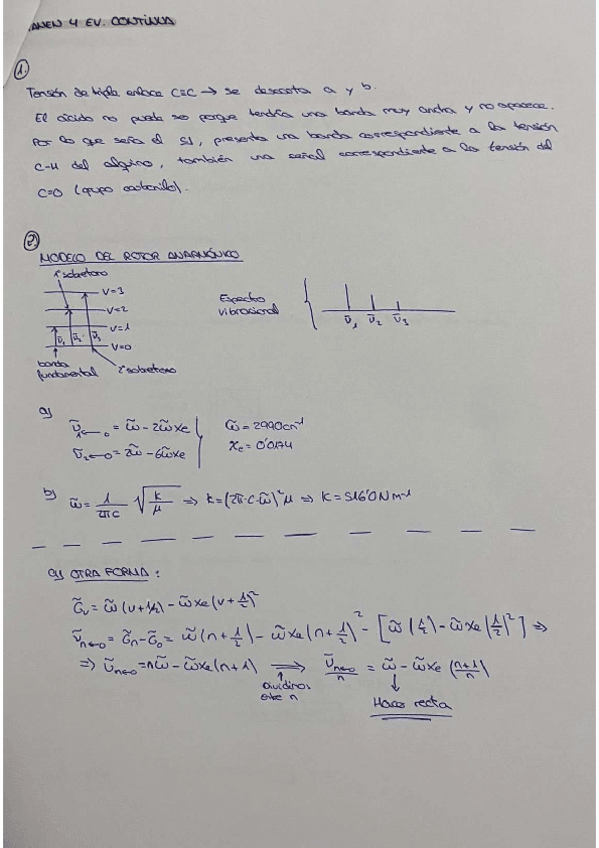 ANEN 4 EV. CONTINUA
1.
Tensión de triple enlace C≡C → se descarta a y b.
El ácido no puede ser porque tendría una banda muy ancha y no aparece.
Por lo que sería el S1, presenta una banda correspondiente a la tensión
C-H del alquino, también una señal correspondiente a la tensión del
C=O (grupo carbonilo).
2.
MODELO DEL ROTOR ANARMÓNICO
1º sobretono
V=3
V=2
V=1
V=0
ῡ₁ ῡ₂ ῡ₃
banda fundamental
2º sobretono
Espectro vibracional
ῡ₁ ῡ₂ ῡ₃
a)
ῡ₁←₀ = ω̃ - 2ω̃xe
ῡ₂←₀ = 2ω̃ - 6ω̃xe
ω̃ = 2990cm⁻¹
xe = 0'0174
b) ω̃ = 1/2πc √k/μ ⇒ k = (2π·c·ω̃)²μ ⇒ k = 516'0 N m⁻¹
a) OTRA FORMA:
G̃v = ω̃(v+1/2) - ω̃xe(v+1/2)²
ῡn←0 = G̃n - G̃0 = ω̃(n+1/2) - ω̃xe(n+1/2)² - [ω̃(1/2) - ω̃xe(1/2)²] ⇒
⇒ ῡn←0 = nω̃ - ω̃xe(n+1) ⟹ ῡn←0/n = ω̃ - ω̃xe(n+1/n)
dividimos entre n
Haces recta